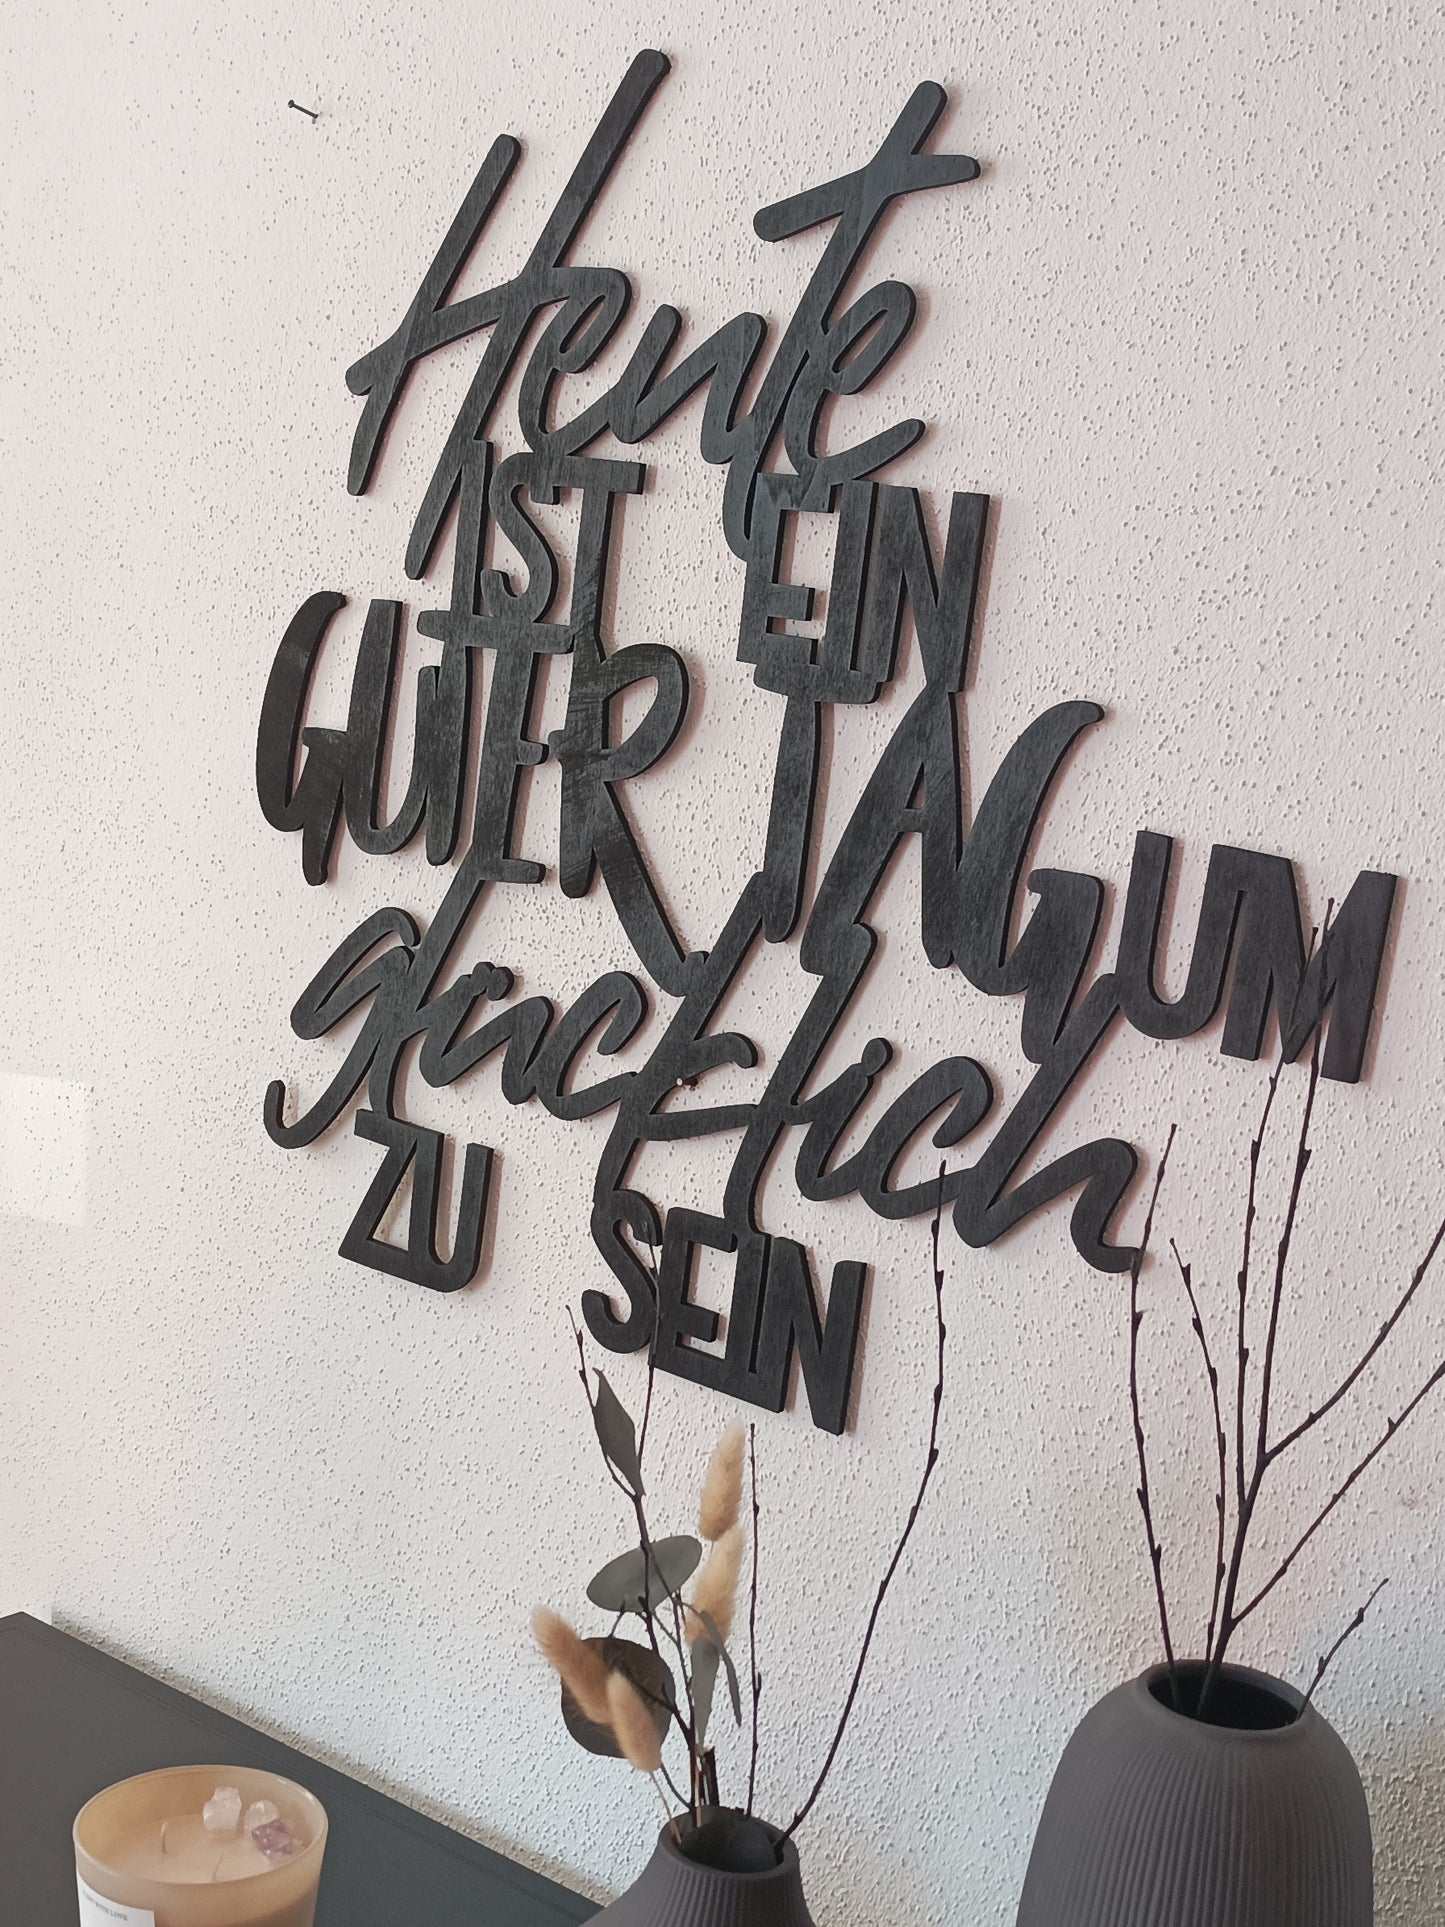 Heute
IST EIN
GUTER TAG UM
glücklich
ZU SEIN
WITH LOVE